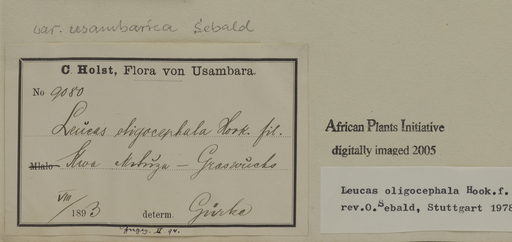 var. usambarica Sebald
C. Holst, Flora von Usambara.
No 9080
Leucas oligocephala Hook. fil.
Mlalo Kwa Mshuza – Graswuchs
VIII/1893 determ. Gürke
II. 94.
African Plants Initiative
digitally imaged 2005
Leucas oligocephala Hook.f.
rev.O.Sebald, Stuttgart 1978